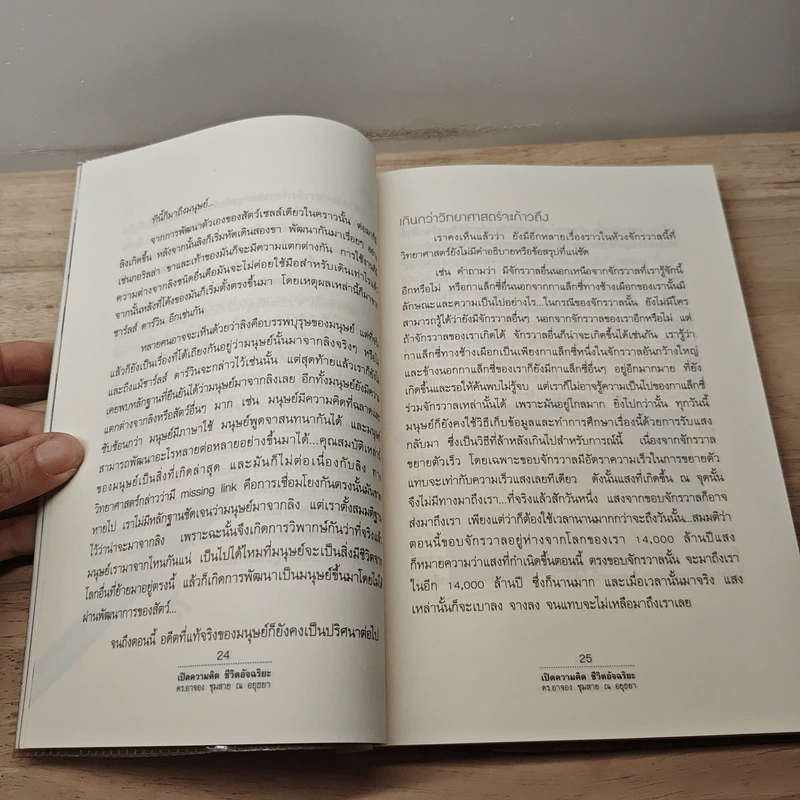 ทีนี้ก็มาถึงมนุษย์...
จากการพัฒนาตัวเองของสัตว์เซลล์เดียวในคราวนั้น ต่อมาก็มี
ลิงเกิดขึ้น หลังจากนั้นลิงก็เริ่มหัดเดินสองขา พัฒนากันมาเรื่อยๆ
เช่นกอริลล่า ขาและเท้าของมันก็จะมีความแตกต่างกัน การใช้งานก็มี
ความต่างจากลิงชนิดอื่นคือมันจะไม่ค่อยใช้มือสำหรับเดินเท่าไรแล้ว
จากนั้นหลังที่โค้งของมันก็เริ่มตรงขึ้นมา โดยเหตุผลเหล่านี้ก็มาจาก
ชาร์ลส์ ดาร์วิน อีกเช่นกัน
หลายคนอาจจะเห็นด้วยว่าลิงคือบรรพบุรุษของมนุษย์
แล้วก็ยังเป็นเรื่องที่โต้เถียงกันอยู่ว่ามนุษย์นั้นมาจากลิงจริงๆ หรือไม่
และถึงแม้ชาร์ลส์ ดาร์วินจะกล่าวไว้เช่นนั้น แต่สุดท้ายแล้วเราก็ยังไม่
เคยพบหลักฐานที่ยืนยันได้ว่ามนุษย์มาจากลิงเลย อีกทั้งมนุษย์ยังมีความ
แตกต่างจากลิงหรือสัตว์อื่นๆ มาก เช่น มนุษย์มีความคิดที่ฉลาดและ
ซับซ้อนกว่า มนุษย์มีภาษาใช้ มนุษย์พูดจาสนทนากันได้ และมนุษย์
สามารถพัฒนาอะไรหลายต่อหลายอย่างขึ้นมาได้...คุณสมบัติเหล่านี้
ของมนุษย์เป็นสิ่งที่เกิดล่าสุด และมันก็ไม่ต่อเนื่องกับลิง ทาง
วิทยาศาสตร์กล่าวว่ามี missing link คือการเชื่อมโยงกันตรงนั้นมันขาด
หายไป เราไม่มีหลักฐานชัดเจนว่ามนุษย์มาจากลิง แต่เราตั้งสมมติฐาน
ไว้ว่าน่าจะมาจากลิง เพราะฉะนั้นจึงเกิดการวิพากษ์กันว่าที่จริงแล้ว
มนุษย์เรามาจากไหนกันแน่ เป็นไปได้ไหมที่มนุษย์จะเป็นสิ่งมีชีวิตจาก
โลกอื่นที่ย้ายมาอยู่ตรงนี้ แล้วก็เกิดการพัฒนาเป็นมนุษย์ขึ้นมาโดยไม่ได้
ผ่านพัฒนาการของสัตว์...
จนถึงตอนนี้ อดีตที่แท้จริงของมนุษย์ก็ยังคงเป็นปริศนาต่อไป
24
เปิดความคิด ชีวิตอัจฉริยะ
ดร.อาจอง ชุมสาย ณ อยุธยา
เกินกว่าวิทยาศาสตร์จะก้าวถึง
เราคงเห็นแล้วว่า ยังมีอีกหลายเรื่องราวในห้วงจักรวาลนี้ที่
วิทยาศาสตร์ยังไม่มีคำอธิบายหรือข้อสรุปที่แน่ชัด
เช่น คำถามว่า มีจักรวาลอื่นนอกเหนือจากจักรวาลที่เรารู้จักนี้
อีกหรือไม่ หรือกาแล็กซี่อื่นนอกจากกาแล็กซี่ทางช้างเผือกของเรานั้นมี
ลักษณะและความเป็นไปอย่างไร...ในกรณีของจักรวาลนั้น ยังไม่มีใคร
สามารถรู้ได้ว่ายังมีจักรวาลอื่นๆ นอกจากจักรวาลของเราอีกหรือไม่ แต่
ถ้าจักรวาลของเราเกิดได้ จักรวาลอื่นก็น่าจะเกิดขึ้นได้เช่นกัน เรารู้ว่า
กาแล็กซี่ทางช้างเผือกเป็นเพียงกาแล็กซี่หนึ่งในจักรวาลอันกว้างใหญ่
และข้างนอกกาแล็กซี่ของเราก็ยังมีกาแล็กซี่อื่นๆ อยู่อีกมากมาย ที่ยัง
เกิดขึ้นและรอให้ค้นพบไม่รู้จบ แต่เราก็ไม่อาจรู้ความเป็นไปของกาแล็กซี่
ร่วมจักรวาลเหล่านั้นได้ เพราะมันอยู่ไกลมาก ยิ่งไปกว่านั้น ทุกวันนี้
มนุษย์ก็ยังคงใช้วิธีเก็บข้อมูลและทำการศึกษาเรื่องนี้ด้วยการรับแสง
กลับมา ซึ่งเป็นวิธีที่ล้าหลังเกินไปสำหรับการณ์นี้ เนื่องจากจักรวาล
ขยายตัวเร็ว โดยเฉพาะขอบจักรวาลมีอัตราความเร็วในการขยายตัว
แทบจะเท่ากับความเร็วแสงเลยทีเดียว ดังนั้นแสงที่เกิดขึ้น ณ จุดนั้น
จึงไม่มีทางมาถึงเรา...ที่จริงแล้วสักวันหนึ่ง แสงจากขอบจักรวาลก็อาจ
ส่งมาถึงเรา เพียงแต่ว่าก็ต้องใช้เวลานานมากกว่าจะถึงวันนั้น...สมมติว่า
ตอนนี้ขอบจักรวาลอยู่ห่างจากโลกของเรา 14,000 ล้านปีแสง
ก็หมายความว่าแสงที่กำเนิดขึ้นตอนนี้ ตรงขอบจักรวาลนั้น จะมาถึงเรา
ในอีก 14,000 ล้านปี ซึ่งก็นานมาก และเมื่อเวลานั้นมาจริง แสง
เหล่านั้นก็จะเบาลง จางลง จนแทบจะไม่เหลือมาถึงเราเลย
25
เปิดความคิด ชีวิตอัจฉริยะ
ดร.อาจอง ชุมสาย ณ อยุธยา